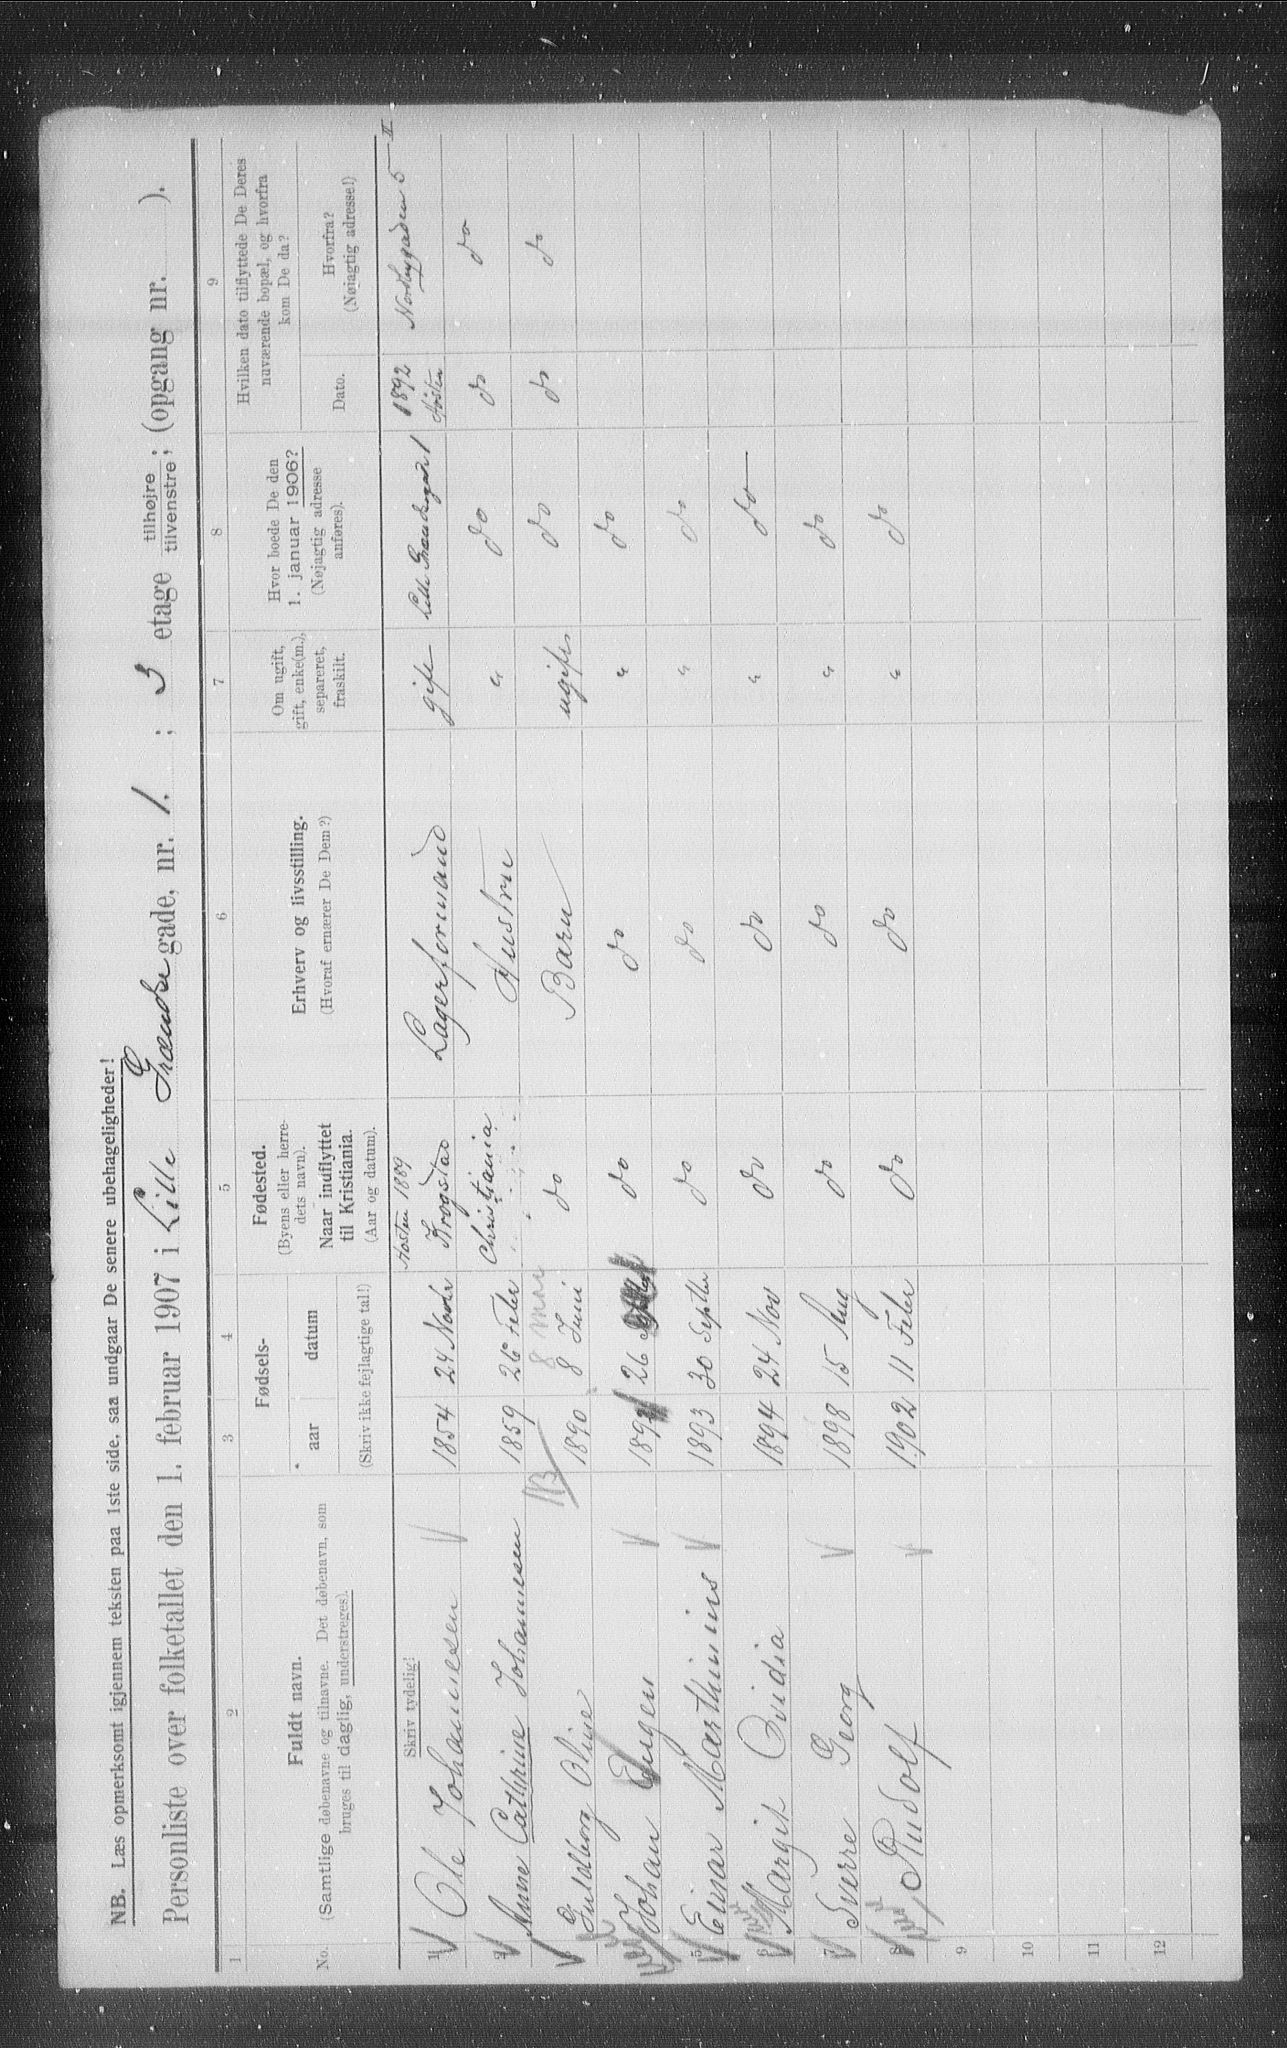 NB. Læs opmerksomt igjennem teksten paa 1ste side, saa undgaar De senere ubehageligheder!
Personliste over folketallet den 1. februar 1907 i Lille Grændse gade, nr. 1. ; 3 etage tilhøjre / tilvenstre ; (opgang nr. ).
1 2 3 4 5 6 7 8 9
No.
Fuldt navn.
(Samtlige døbenavne og tilnavne. Det døbenavn, som
bruges til daglig, understreges).
Fødsels-
aar datum
(Skriv ikke fejlagtige tal!)
Fødested.
(Byens eller herre-
dets navn).
Naar indflyttet
til Kristiania.
(Aar og datum).
Erhverv og livsstilling.
(Hvoraf ernærer De Dem?)
Om ugift,
gift, enke(m.),
separeret,
fraskilt.
Hvor boede De den
1. januar 1906?
(Nøjagtig adresse
anføres).
Hvilken dato tilflyttede De Deres
nuværende bopæl, og hvorfra
kom De da?
Dato.
Hvorfra?
(Nøjagtig adresse!)
Skriv tydelig!
Høsten 1889
1 Ole Johannesen 1854 24 Novbr Krogstad Lagerformand gift Lille Grændsegade 1 1892 Høsten Norbygaden 5 II
2 Anne Cathrine Johannesen 1859 26 Feber Christiania Hustru " do do do
NB 8 mai
3 Guldborg Oline 1890 8 Juni do Barn ugift do do do
4 Johan Eugen 26 do do " do
5 Einar Marthinius 1893 30 Septbr do do " do
6 Margit Ovidia 1894 24 Nov do do " do
7 Sverre Georg 1898 15 Aug do do " do
8 Rudolf 1902 11 Feber do do " do
9
10
11
12